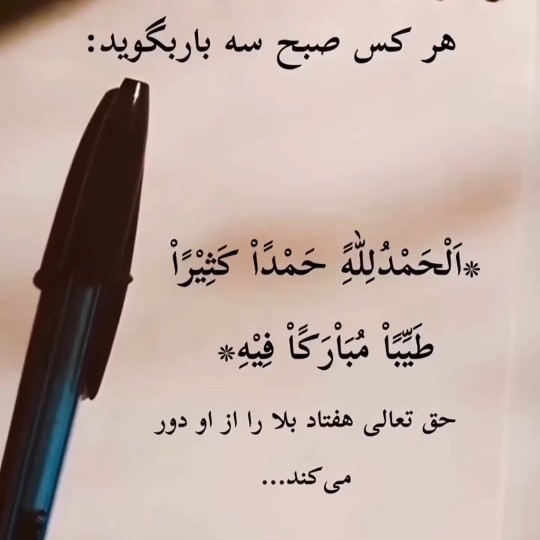 هر کس صبح سه باربگوید:
*اَلْحَمْدُلِلّٰهِ حَمْدًاْ کَثِیْرًاْ
طَیِّبًاْ مُبَاْرَکًاْ فِیْهِ*
حق تعالی هفتاد بلا را از او دور
می‌کند...